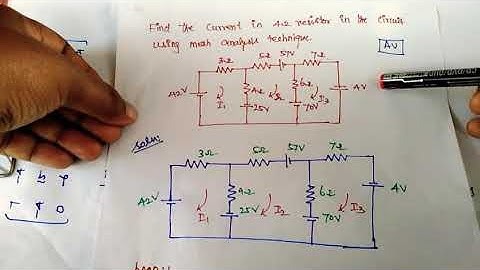 Find the current in 4Ω resistor in the circuit
using mesh analysis technique.
AV
57V
3Ω 5Ω 7Ω
42V 4Ω 6Ω 4V
I1 I2 I3
25V 70V
Soln:
57V
3Ω 5Ω 7Ω
42V 4Ω 6Ω 4V
I1 25V I2 70V I3